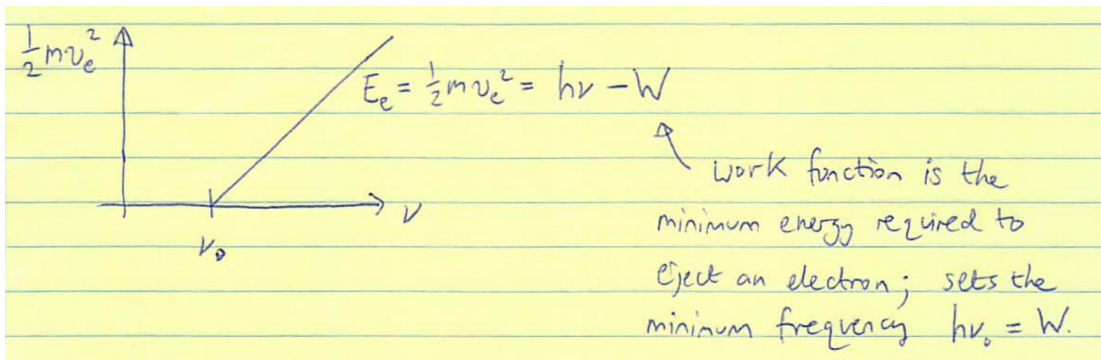 ½mv_e²
E_e = ½mv_e² = hν − W
ν
ν₀
work function is the
minimum energy required to
eject an electron; sets the
minimum frequency hν₀ = W.